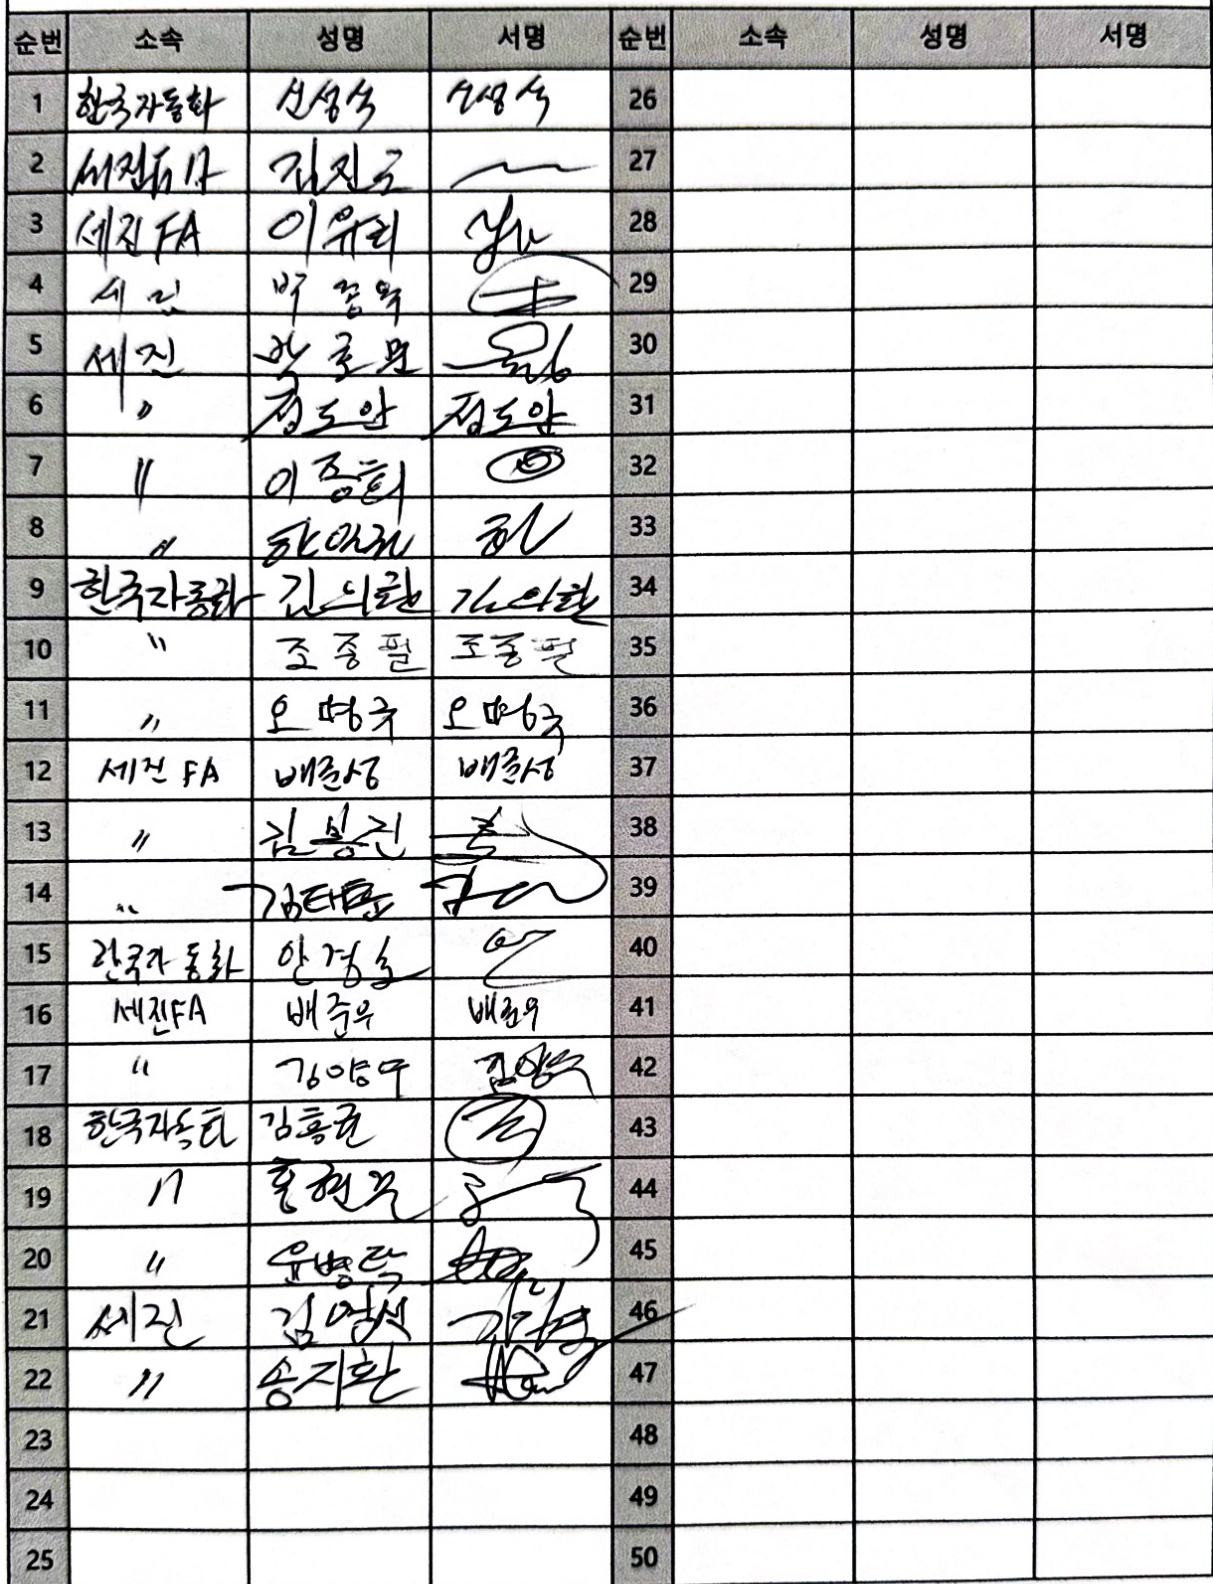 순번 소속 성명 서명 순번 소속 성명 서명
1 한국자동화 신성식 26
2 세진FA 김진국 27
3 세진 FA 이유리 28
4 세진 29
5 세진 박 30
6 〃 정도암 정도암 31
7 〃 이종희 32
8 〃 33
9 한국자동화 김의환 김의환 34
10 〃 조종필 조종필 35
11 〃 오명국 오명국 36
12 세진 FA 배글성 배글성 37
13 〃 김봉진 38
14 〃 김태훈 39
15 한국자동화 안경호 40
16 세진FA 배준우 배준우 41
17 〃 김양우 42
18 한국자동화 김홍균 43
19 〃 홍현우 44
20 〃 윤병탁 45
21 세진 김영석 46
22 〃 송지환 47
23 48
24 49
25 50